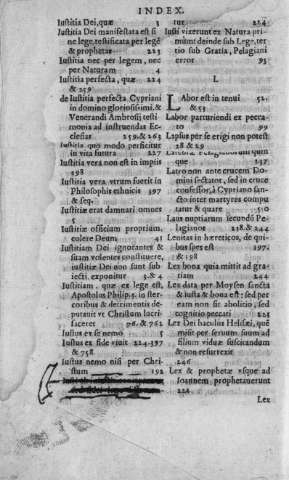 INDEX.
Iustitia Dei, quæ 3
Iustitia Dei manifestata est si
ne lege, testificata per legē
& prophetas 223
Iustitia nec per legem, nec
per Naturam 4
Iustitia perfecta, quæ 224
& 259
de Iustitia perfecta Cypriani
in domino gloriosissimi. &
Venerandi Ambrosij testi
monia ad instruendas Ec
clesias 259. & 263
Iustitia quo modo perficitur
in vita futura 227
Iustitia vera non est in impiis
398
Iustitia vera vtrum fuerit in
Philosophis ethnicis 397
& seq.
Iustitiæ erat damnari omnes
5
Iustitiæ officium proprium,
colere Deum. 41
Iustitiam Dei ignorantes &
suam volentes constituere,
iustitiæ Dei non sunt sub
iecti, exponitur 3. & 4
Iustitiam, quæ ex lege est,
Apostolus Philip. 3. in ster
coribus & detrimentis de-
putauit vt Christum lucri
faceret 76. & 762
Iustus ex se nemo
Iustus ex fide viuit 224. 397
& 758
Iustus nemo nisi per Chri
stum 192
tur 224
Iusti vixerunt ex Natura pri
mum: deinde sub Lege, ter
tio sub Gratia, Pelagiani
error 93
L
LAbor est in tenui 52.
& 53
Labor parturiendi ex pecca
to 99
Lapsus per se erigi non potest
28 & 29
que 237.
Latro non ante crucem Do-
mini sectator, sed in cruce
confessor, à Cypriano sanc-
to inter martyres compu
tatur & quare 510
Laus nuptiarum secundū Pe-
lagianos 238. & 244
Lenitas in hæreticos, de qui-
bus spes est 197.
& 198
Lex bona quia mittit ad gra-
tiam 244
Lex data per Moysen sancta
& iusta & bona est: sed per
eam non sit abolitio, sed
cognitio peccati 225
Lex Dei baculus Helisei, quē
misit per seruum suum ad
filium viduæ suscitandum
& non resurrexit
246
Lex & prophetæ vsque ad
Ioannem prophetauerunt
224
Lex